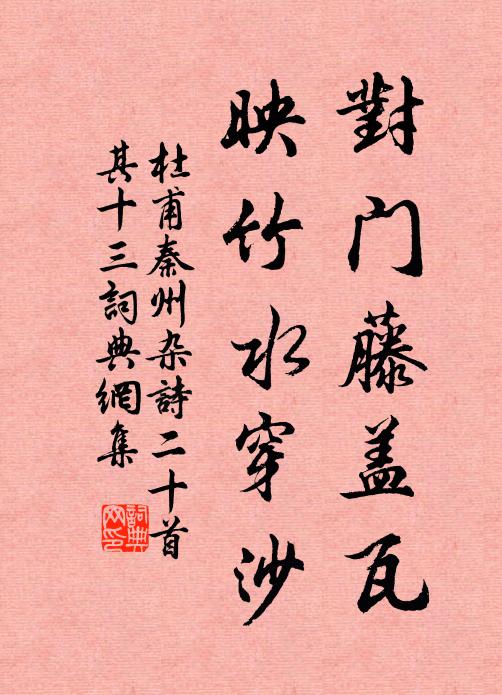 對门藤盖瓦
映竹水穿沙
杜甫秦州杂詩二十首
其十三詞典網集
詞典
网印